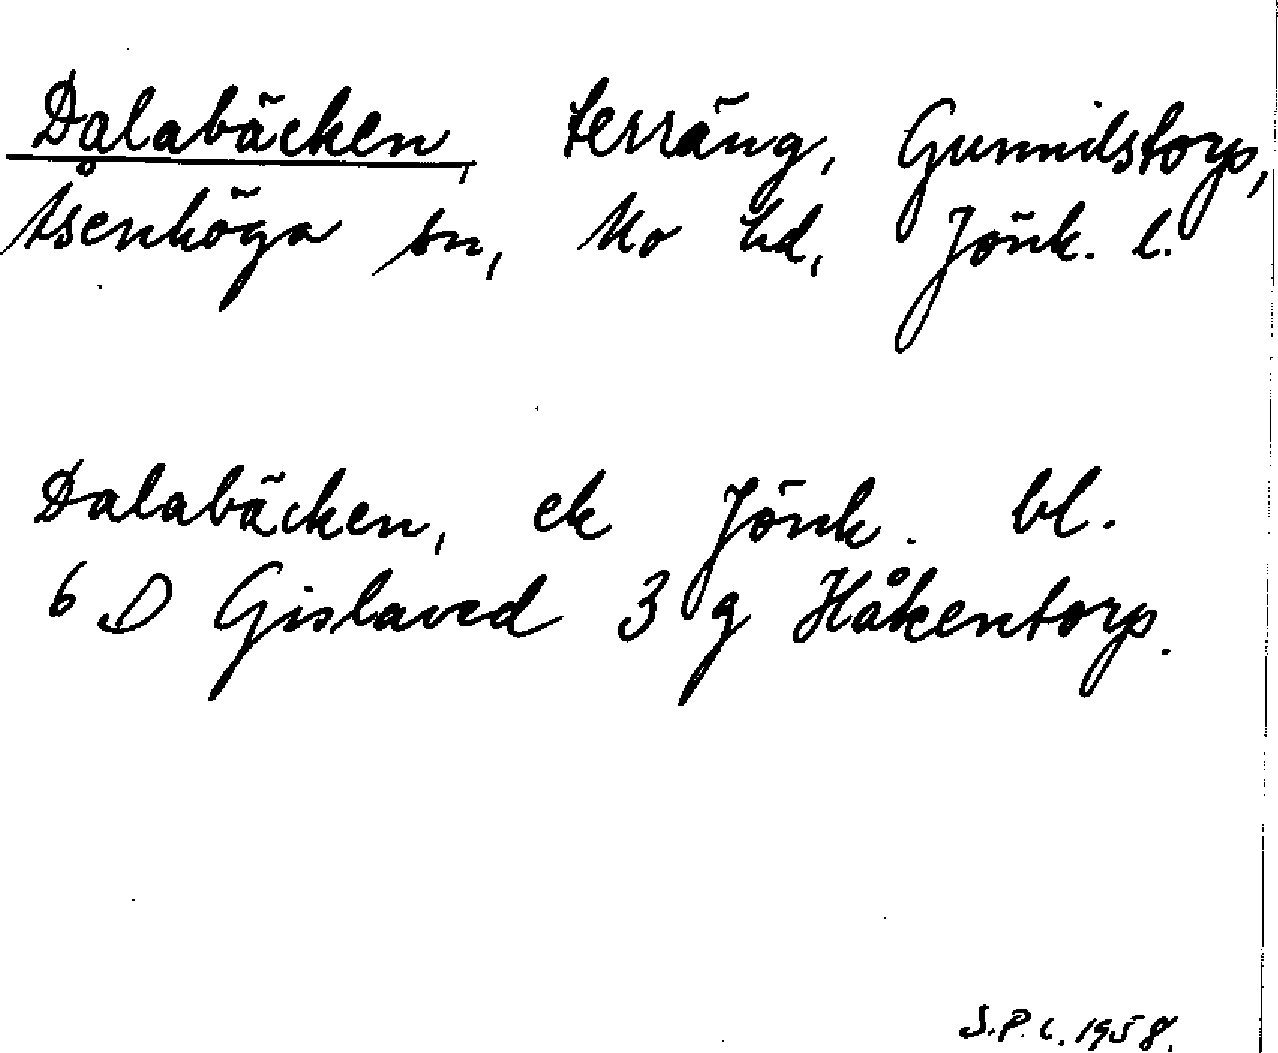 Dalabäcken, terräng, Gunnilstorp,
Åsenhöga sn, Mo hd, Jönk. l.
Dalabäcken, ek Jönk. bl.
6 D Gislaved 3 g Håkentorp.
S.P.L. 1958.